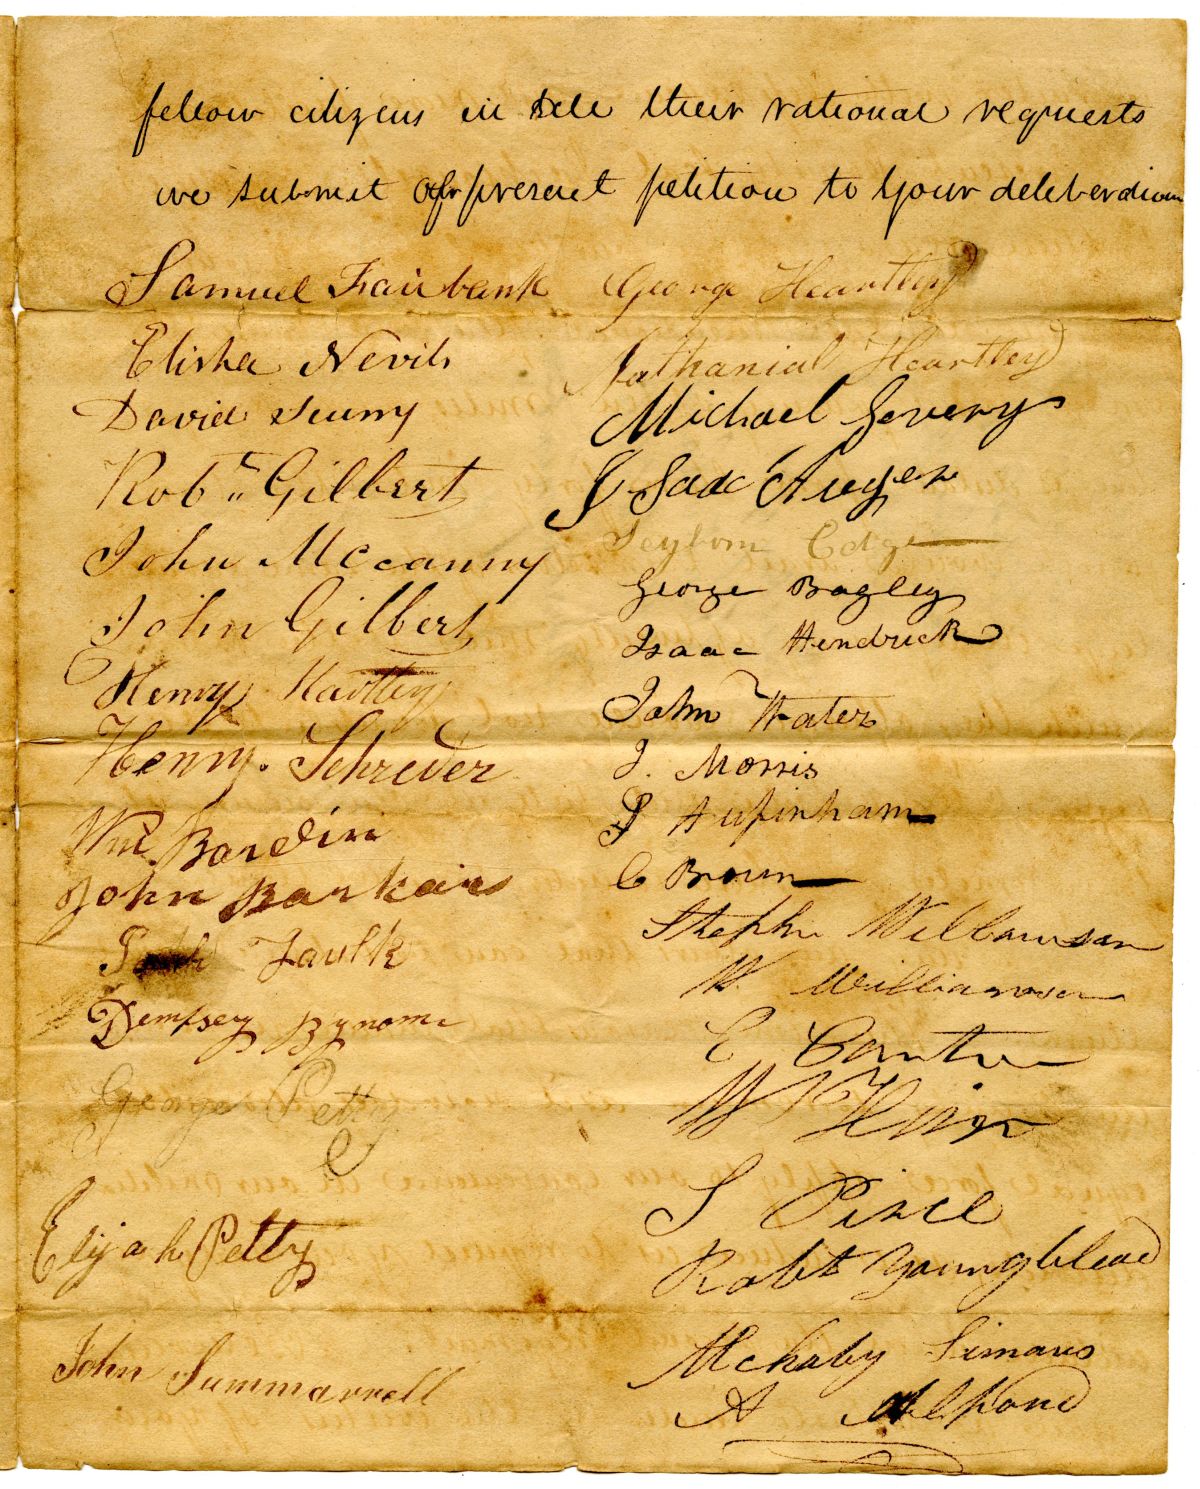 fellow citizens in all their rational requests
we submit our present petition to your deliberation
Samuel Fairbank
Elisha Nevils
David
Robt Gilbert
John Mccanny
John Gilbert
Henry Hartley
Henry. Schreder
Wm Bardin
John Barkains
Faulk
Dempsey Bynom
George Petty
Elijah Petty
John Summarrell
George Heartley
Nathanial Heartley
Michael Severy
Isaac
George Bagley
Isaac Hendrick
John
J. Morris
C Brown
Williamson
W Williamson
E
W
S Pirce
Robt Youngblood
Simans
A